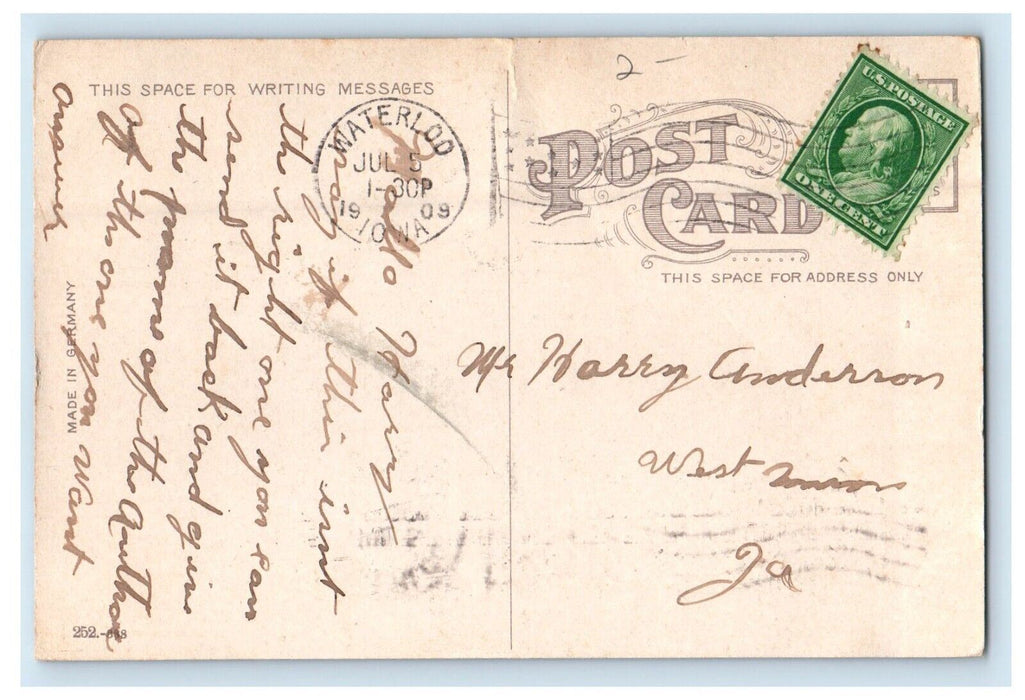 2-
THIS SPACE FOR WRITING MESSAGES
WATERLOO
JUL 5
1-30P
19 09
IOWA
POST
CARD
U.S. POSTAGE
ONE CENT
THIS SPACE FOR ADDRESS ONLY
Hallo Harry
say if this isnt
the right one you can
send it back and give
the name of the Author
of the one you want
answer
Mr Harry Anderson
West Union
Ia
MADE IN GERMANY
252.-